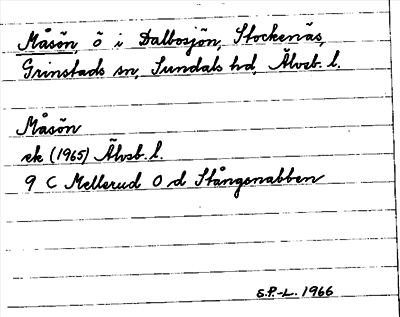 Måsön, ö i Dalbosjön, Stockenäs,
Grinstads sn, Sundals hd, Älvsb. l.
Måsön
ek (1965) Älvsb. l.
9 C Mellerud O d Stångsnabben
S.P.-L. 1966